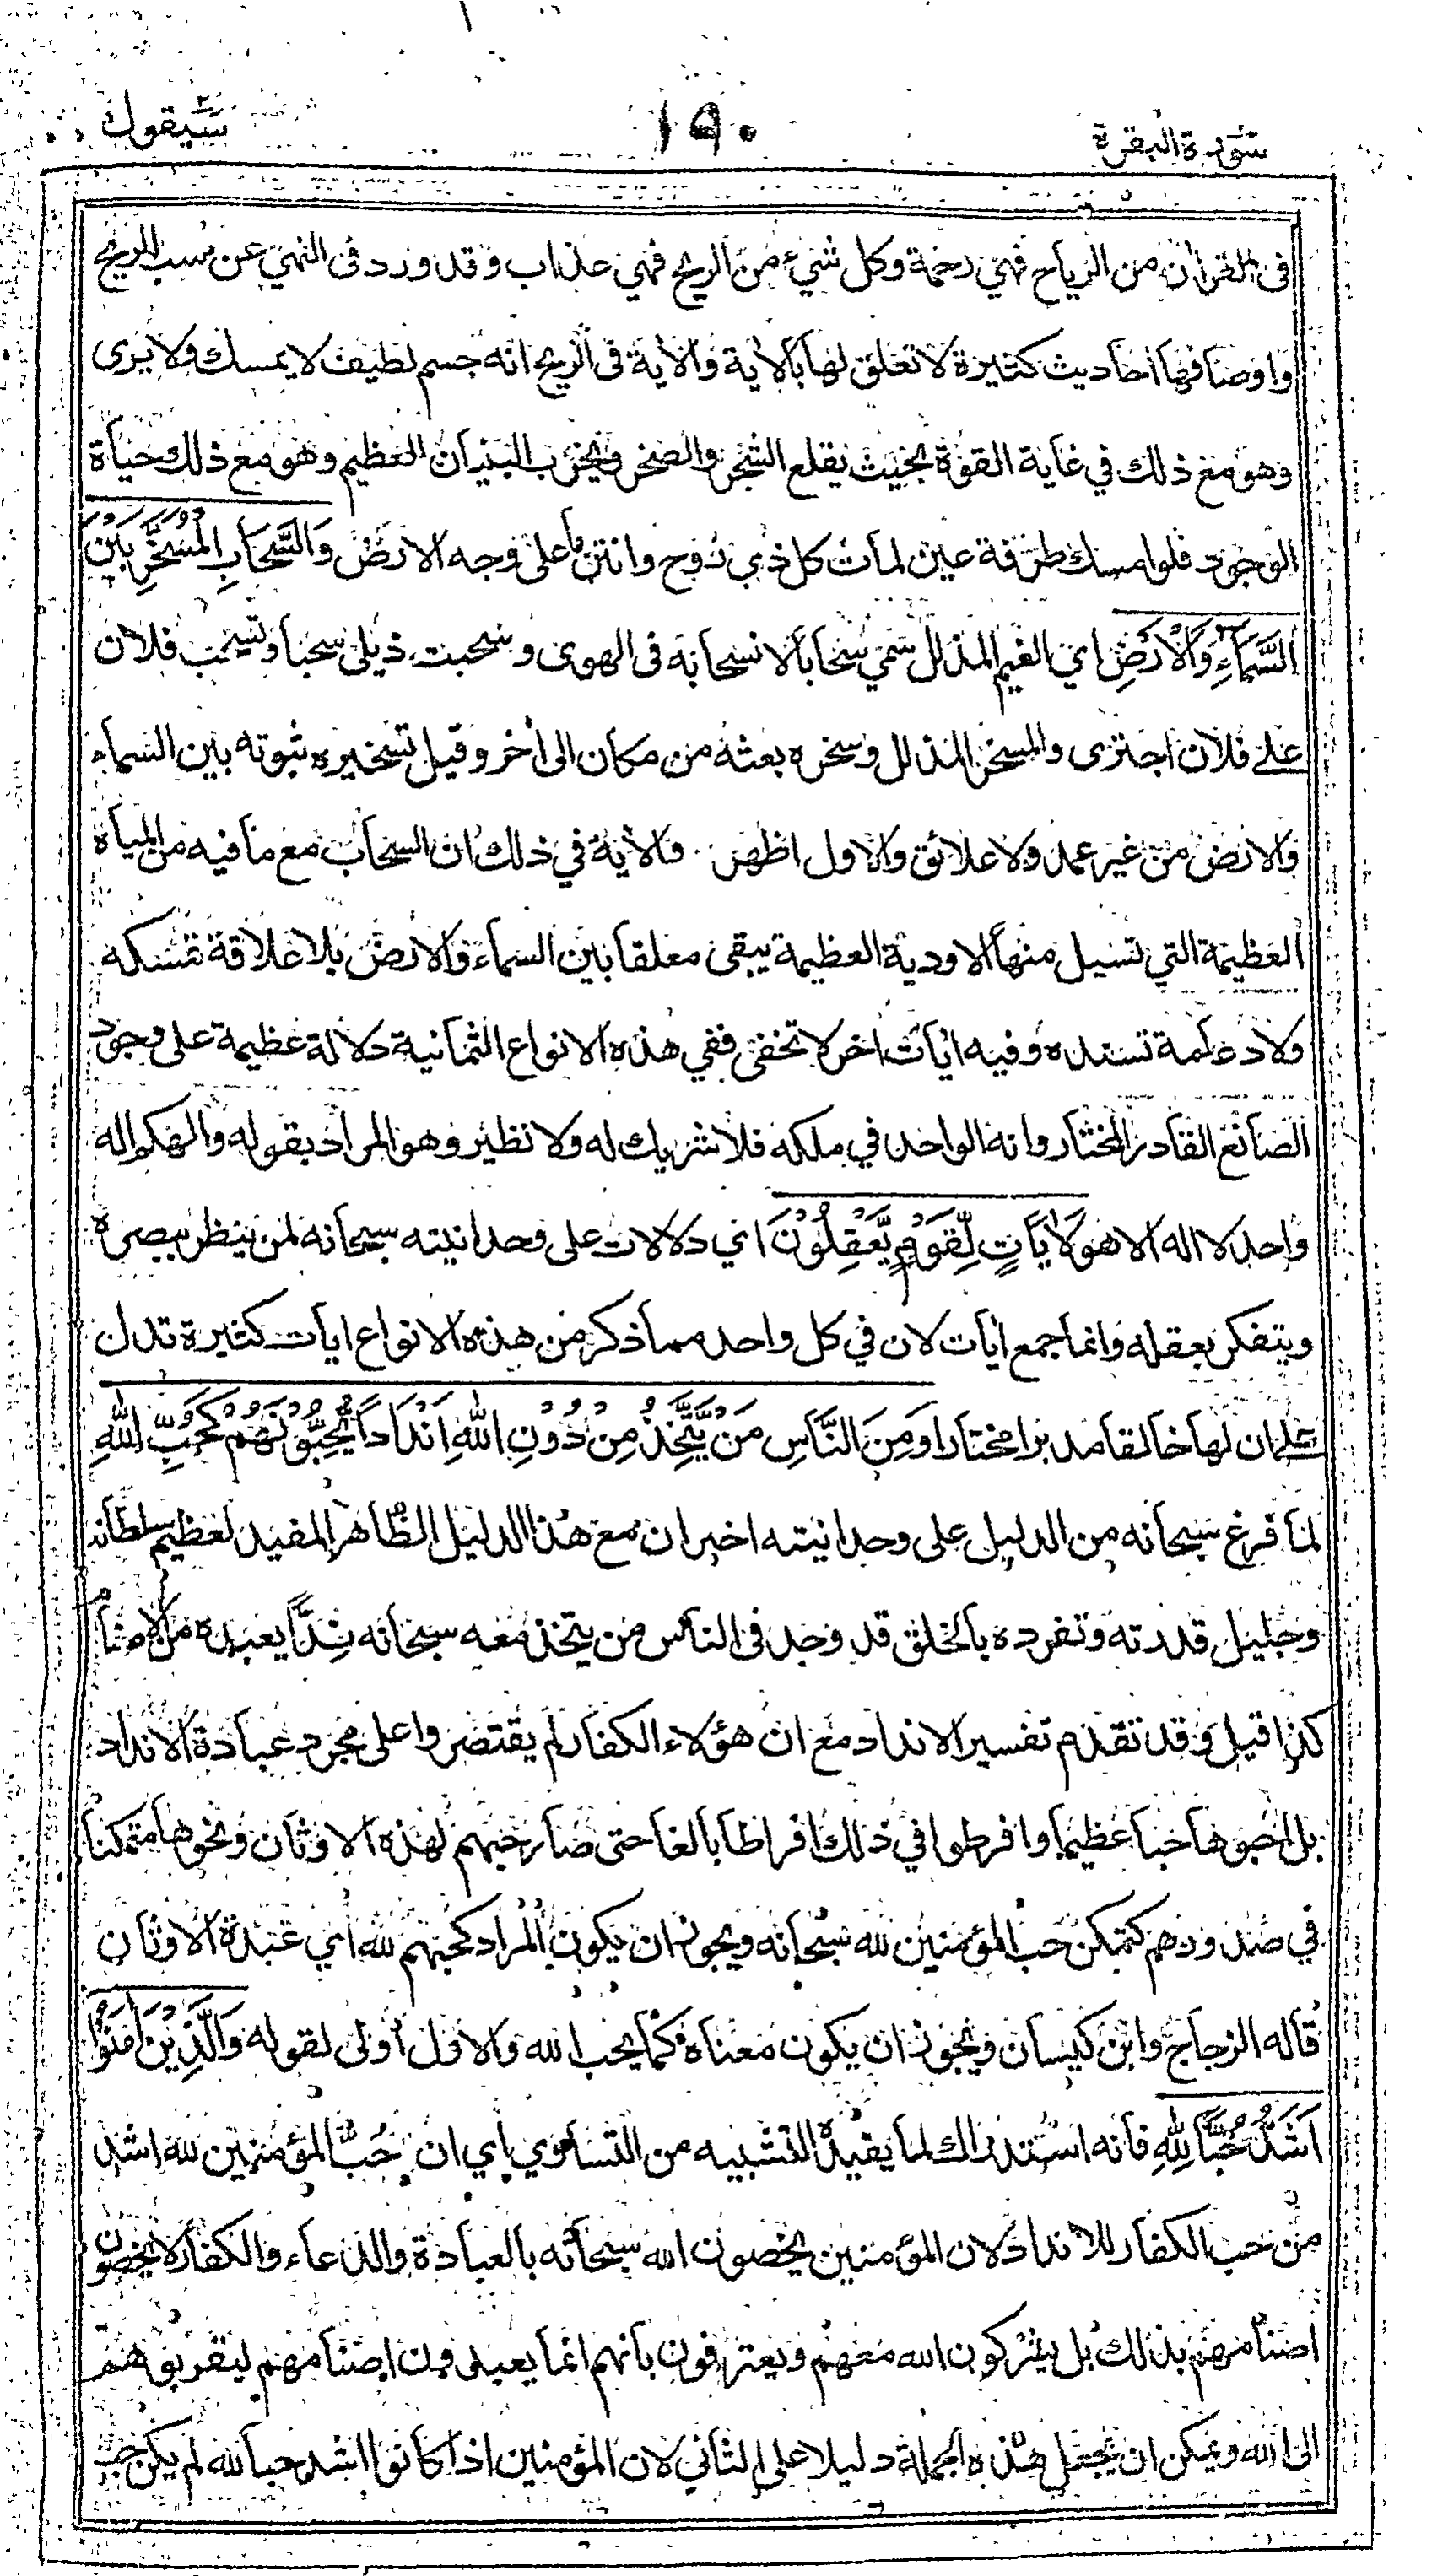 سورة البقرة ١٩٠ سيقول
فى القرأن من الرياح فهي رحمة وكل شيء من الريح فهي عذاب وقد ورد فى النهي عن سب الريح
واوصافها أحاديث كثيرة لا تعلق لها بالأية والأية فى الريح انه جسم لطيف لا يمسك ولا يرى
وهو مع ذلك في غاية القوة بحيث يقلع الشجر والصخر ويخرب البنيان العظيم وهو مع ذلك حياة
الوجود فلو امسك طرفة عين لمات كل ذي روح وانتن ما على وجه الارض وَالسَّحَابِ الْمُسَخَّرِ بَيْنَ
السَّمَآءِ وَالْأَرْضِ اي الغيم المذلل سمي سحابا لانسحابه فى الهوى وسحبت ذيلى سحبا وتسحب فلان
على فلان اجترى والمسخر المذلل وسخره بعثه من مكان الى أخر وقيل تسخيره ثبوته بين السماء
والارض من غير عمد ولا علائق والاول اظهر والأية في ذلك ان السحاب مع ما فيه من المياه
العظيمة التي تسيل منها الاودية العظيمة يبقى معلقا بين السماء والارض بلا علاقة تمسكه
ولا دعامة تسنده وفيه ايات اخر لا تخفى ففي هذه الانواع الثمانية دلالة عظيمة على وجود
الصانع القادر المختار وانه الواحد في ملكه فلا شريك له ولا نظير وهو المراد بقوله والهكم اله
واحد لا اله الا هو لَأيَاتٍ لِّقَوْمٍ يَّعْقِلُوْنَ اي دلالات على وحدانيته سبحانه لمن ينظر ببصره
ويتفكر بعقله وانما جمع ايات لان في كل واحد مما ذكر من هذه الانواع ايات كثيرة تدل
على ان لها خالقا مدبرا مختارا وَمِنَ النَّاسِ مَنْ يَّتَّخِذُ مِنْ دُوْنِ اللهِ اَنْدَاداً يُّحِبُّوْنَهُمْ كَحُبِّ اللهِ
لما فرغ سبحانه من الدليل على وحدانيته اخبر ان مع هذا الدليل الظاهر المفيد لعظيم سلطانه
وجليل قدرته وتفرده بالخلق قد وجد فى الناس من يتخذ معه سبحانه نِدًّا يعبده من الاصنام
كذا قيل وقد تقدم تفسير الانداد مع ان هؤلاء الكفار لم يقتصروا على مجرد عبادة الانداد
بل احبوها حبا عظيما وافرطوا في ذلك افراطا بالغا حتى صار حبهم لهذه الاوثان ونحوها متمكنا
في صدورهم كتمكن حب المؤمنين لله سبحانه ويجوز ان يكون المراد كحبهم لله أي عبدة الاوثان
قاله الزجاج وابن كيسان ويجوز ان يكون معناه كما يحب الله والاول أولى لقوله وَالَّذِيْنَ اٰمَنُوْا
اَشَدُّ حُبًّا لِلّٰهِ فانه استدراك لما يفيده التشبيه من التساوي اي ان حُبّ المؤمنين لله اشد
من حب الكفار للانداد لان المؤمنين يخصون الله سبحانه بالعبادة والدعاء والكفار لا يخصون
اصنامهم بذلك بل يشركون الله معهم ويعترفون بانهم انما يعبدون اصنامهم ليقربوهم
الى الله ويمكن ان يجعل هذه الجملة دليلا على الثاني لان المؤمنين اذا كانوا اشد حبا لله لم يكن حب